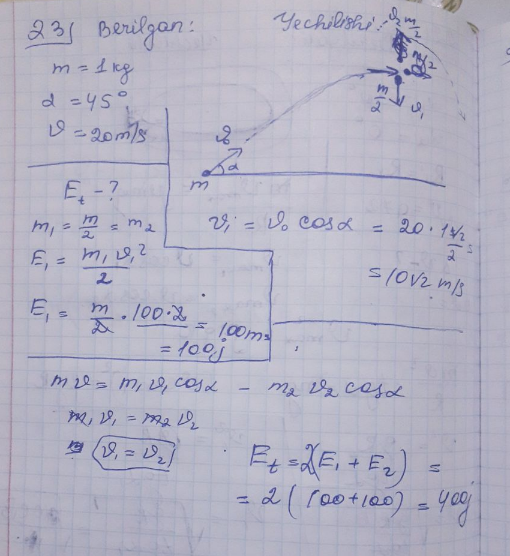 231 Berilgan:
m = 1 kg
α = 45°
ϑ = 20 m/s
Et - ?
m₁ = m/2 = m₂
E₁ = m₁ϑ₁²/2
E₁ = m/2 · 100·2 = 100m =
= 100j
Yechilishi:
ϑ₂ m/2
m/2
m/2 ϑ₁
ϑ₀
α
m
ϑ₁ = ϑ₀ cosα = 20 · 1√2/2 =
= 10√2 m/s
mϑ = m₁ϑ₁cosα - m₂ϑ₂cosα
m₁ϑ₁ = m₂ϑ₂
ϑ₁ = ϑ₂
Et = 2(E₁ + E₂) =
= 2(100+100) = 400j